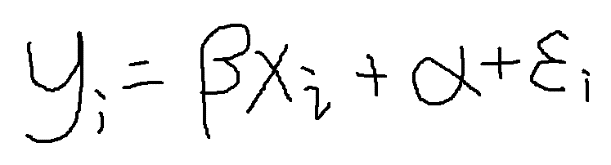 yᵢ = βxᵢ + α + εᵢ